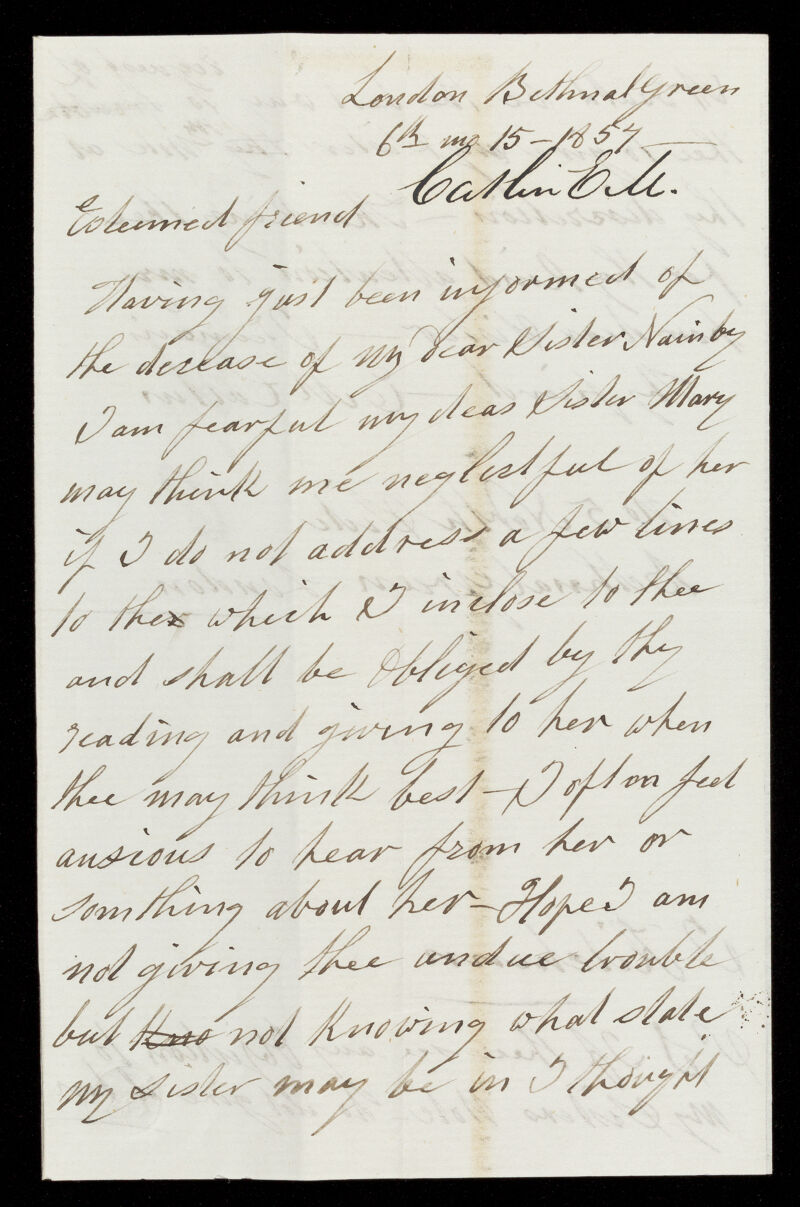 London Bethnal Green
6th mo 15 - 1857
Catlin E. M.
Esteemed friend
Having just been informed of
the desease of My dear Sister Nainby
I am fearful my dear Sister Mary
may think me neglectful of her
if I do not address a few lines
to her which I inclose to thee
and shall be Obliged by thy
reading and giving to her when
thee may think best - I often feel
anxious to hear from her or
somthing about her - Hope I am
not giving thee undue trouble
but Kno not Knowing what state
my sister may be in I thought